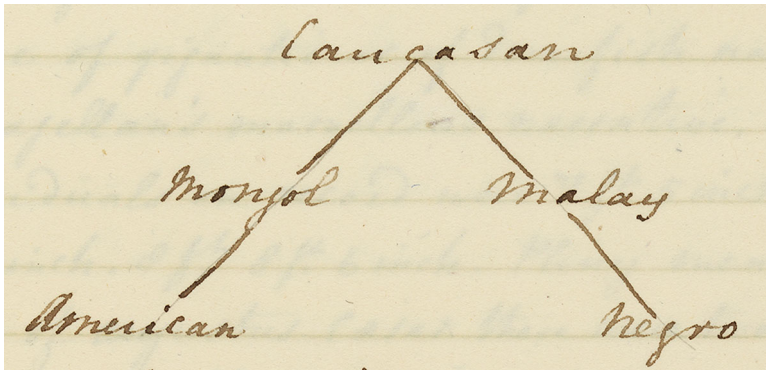 Caucasan
Mongol Malay
American Negro